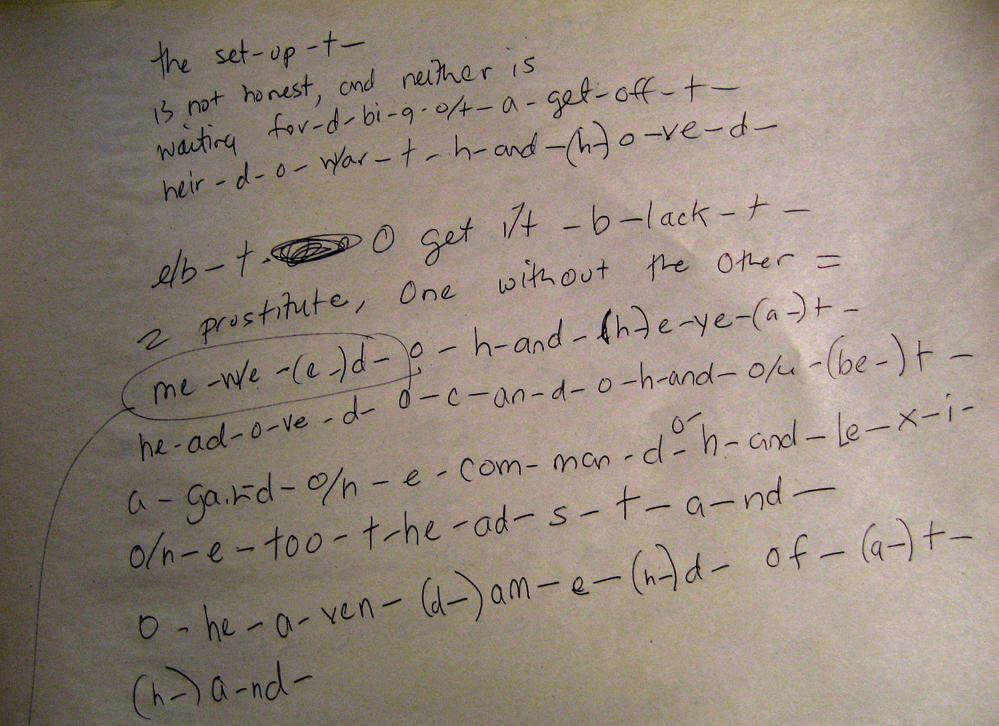 the set-up-t-
is not honest, and neither is
waiting for-d-bi-g-o/t-a-get-off-t-
heir-d-o-w/ar-t-h-and-(h-)o-ve-d-
e/b-t- O get i/t -b-lack-t-
2 prostitute, one without the other =
me-w/e-(e-)d-o-h-and-(h-)e-ye-(a-)t-
he-ad-o-ve-d-o-c-an-d-o-h-and-o/u-(be-)t-
a-ga.i-d-o/n-e-com-man-d-o-h-and-le-x-i-
o/n-e-too-t-he-ad-s-t-a-nd-
o-he-a-ven-(d-)am-e-(h-)d- of-(a-)t-
(h-)a-nd-